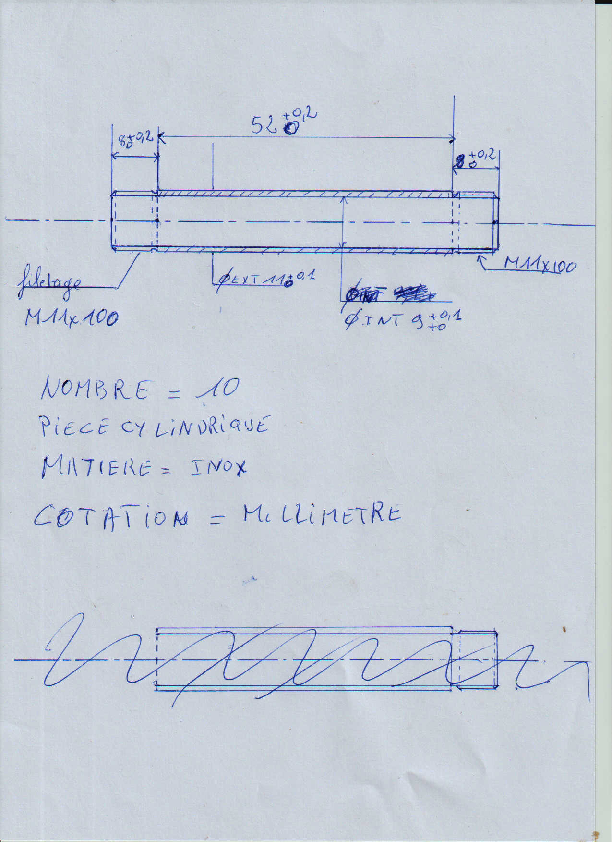 52 +0,2 0
8 +0,2 0
8 +0,2 0
filetage
M11x100
ϕEXT 11 +0,1 0
ϕINT
ϕINT 9 +0,1 +0
M11x100
NOMBRE = 10
PIECE CYLINDRIQUE
MATIERE = INOX
COTATION = MILLIMETRE